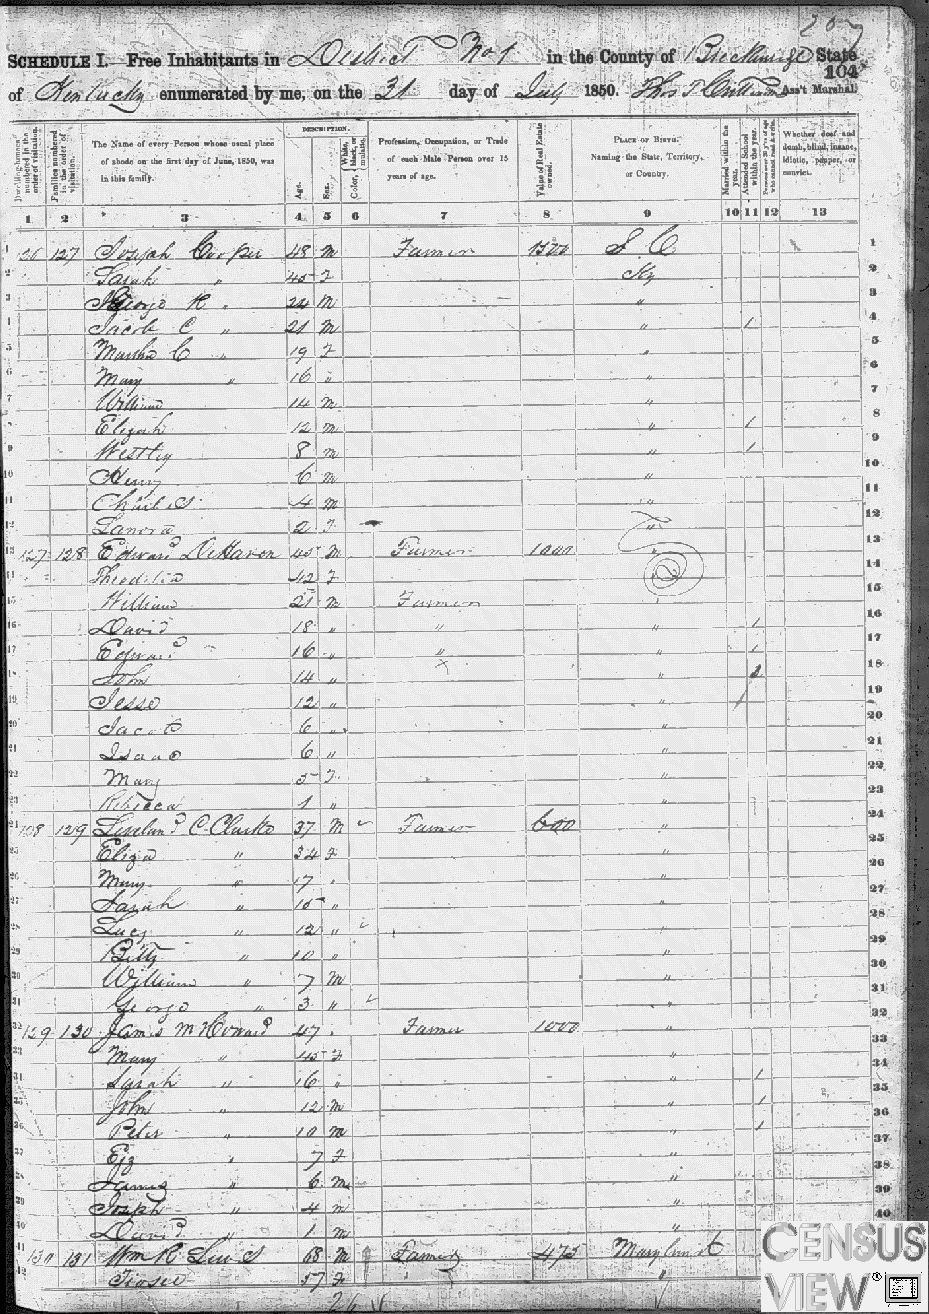 207
SCHEDULE I.—Free Inhabitants in District No 1 in the County of Breckinridge State
104
of Kentucky enumerated by me, on the 31 day of July 1850. Thos J. Ass't Marshal.
Dwelling-houses numbered in the order of visitation.
Families numbered in the order of visitation.
The Name of every Person whose usual place of abode on the first day of June, 1850, was in this family.
DESCRIPTION.
Age.
Sex.
Color, White, black, or mulatto.
Profession, Occupation, or Trade of each Male Person over 15 years of age.
Value of Real Estate owned.
PLACE OF BIRTH. Naming the State, Territory, or Country.
Married within the year.
Attended School within the year.
Persons over 20 y'rs of age who cannot read & write.
Whether deaf and dumb, blind, insane, idiotic, pauper, or convict.
1 2 3 4 5 6 7 8 9 10 11 12 13
1 126 127 Josejah Cooper 48 M Farmer 1500 S. C 1
2 Sarah " 45 F Ky 2
3 George R " 24 M " 3
4 Jacob C " 21 M " 1 4
5 Martha C " 19 F " 5
6 Mary " 16 " " 6
7 William 14 M " 7
8 Elizah 12 M " 1 8
9 Westley 8 M " 1 9
10 Henry 6 M 10
11 Charles 4 M " 11
12 Lanora 2 F " 12
13 127 128 Edward DeHaven 45 M Farmer 1000 " 13
14 Theodelia 42 F 14
15 William 21 M Farmer " 15
16 David 18 " " " 1 16
17 Edward 16 " " " 1 17
18 John 14 " " 1 18
19 Jesse 12 " " 19
20 Jacob 6 " " 20
21 Isaac 6 " " 21
22 Mary 5 F " 22
23 Rebecca 1 " " 23
24 128 129 C. Clarke 37 M Farmer 600 " 24
25 Eliza " 34 F " 25
26 Mary " 17 " " 26
27 Sarah " 15 " " 27
28 Lucy " 12 " " 28
29 Bitty " 10 " " 29
30 William " 7 M " 30
31 George " 3 " " 31
32 129 130 James M Howard 47 Farmer 1000 " 32
33 Mary " 45 F " 33
34 Sarah " 16 " " 1 34
35 John " 12 M " 1 35
36 Peter " 10 M " 1 36
37 Eliz " 7 F 37
38 James " 6 M " 38
39 Joseph " 4 M " 39
40 David " 1 M " 40
41 130 131 Wm R Lewis 68 M Farmer 475 Maryland
42 57 F "
26
CENSUS
VIEW®